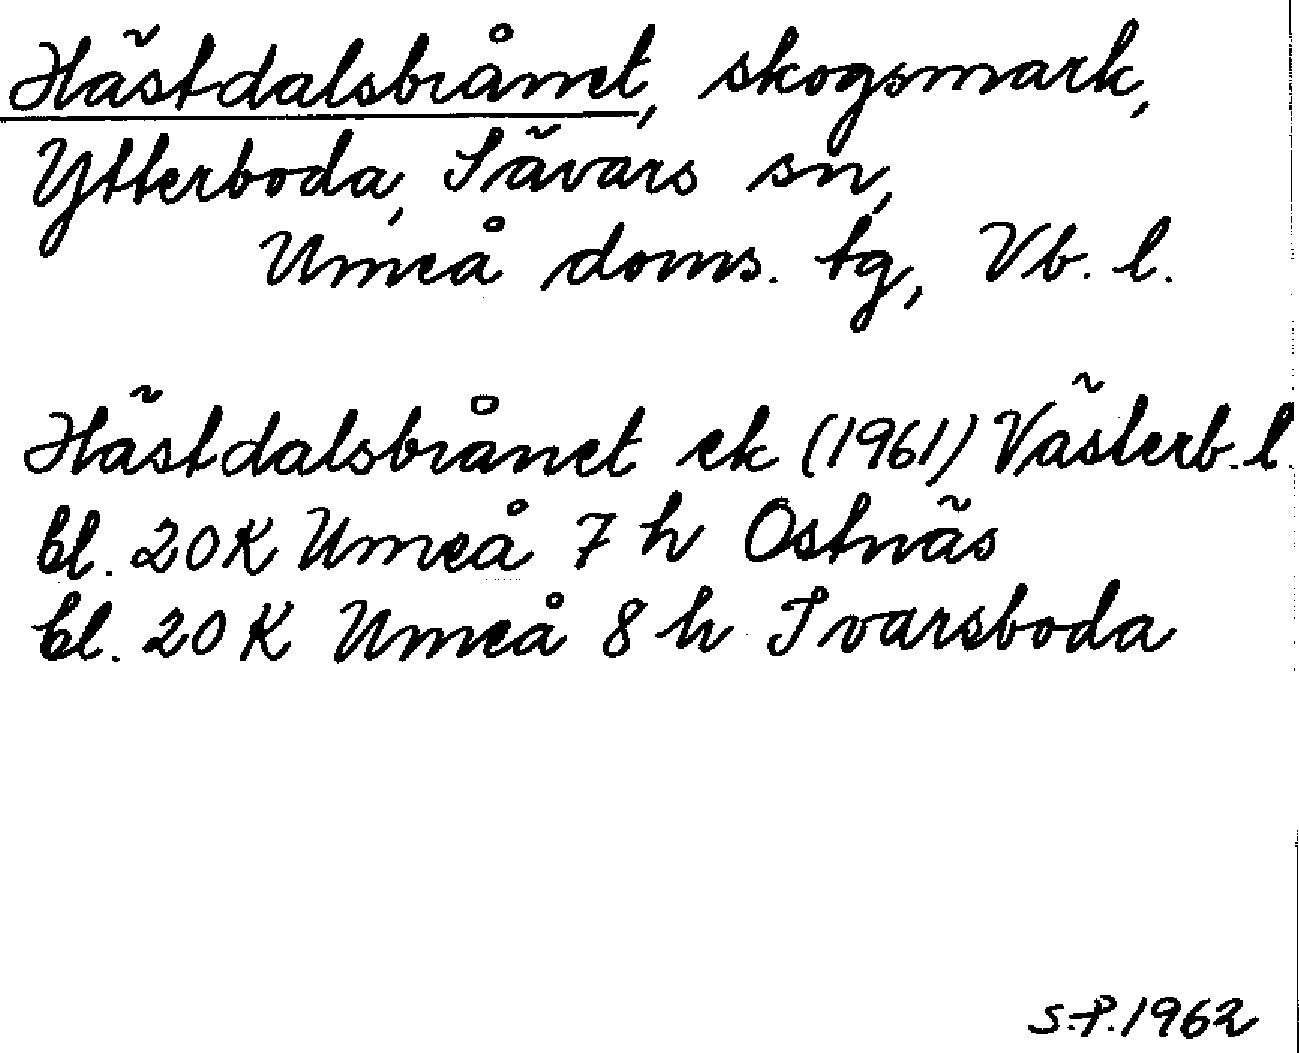 Hästdalsbrånet, skogsmark,
Ytterboda, Sävars sn,
Umeå doms. tg, Vb. l.
Hästdalsbrånet ek (1961) Västerb. l.
bl. 20K Umeå 7 h Ostnäs
bl. 20 K Umeå 8 h Ivarsboda
S.P. 1962